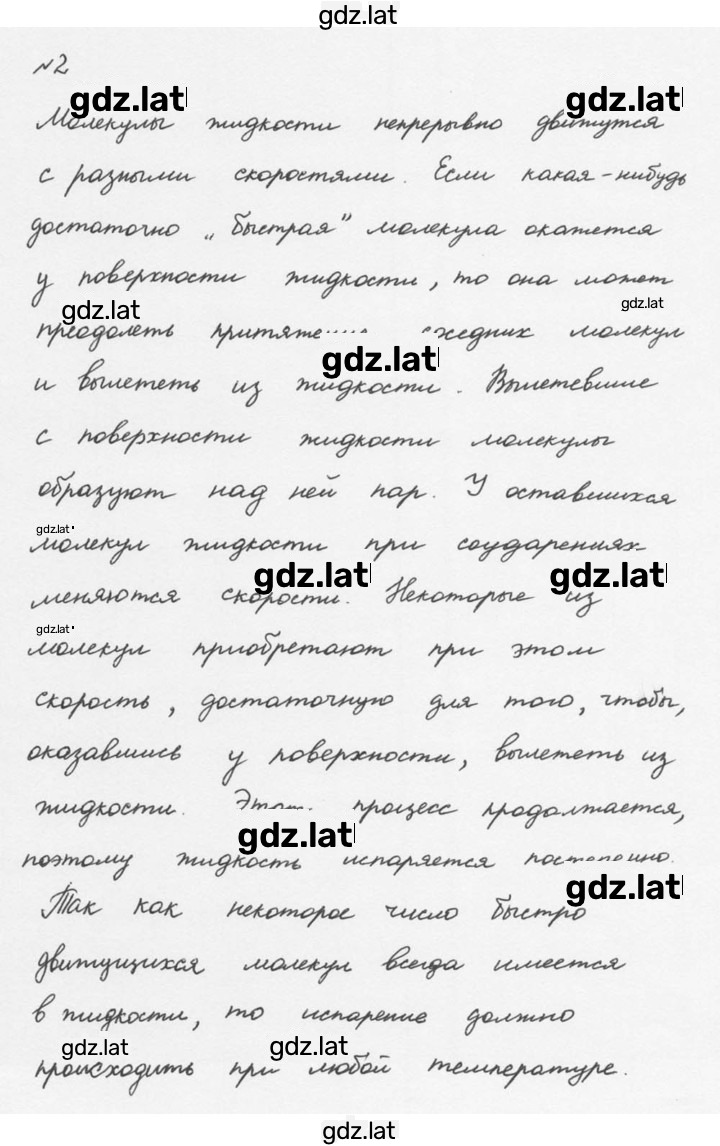 gdz.lat
№2
gdz.lat gdz.lat
Молекулы жидкости непрерывно движутся
с разными скоростями. Если какая-нибудь
достаточно „быстрая” молекула окажется
у поверхности жидкости, то она может
gdz.lat gdz.lat
преодолеть притяжение соседних молекул
gdz.lat
и вылететь из жидкости. Вылетевшие
с поверхности жидкости молекулы
образуют над ней пар. У оставшихся
gdz.lat
молекул жидкости при соударениях
gdz.lat gdz.lat
меняются скорости. Некоторые из
gdz.lat
молекул приобретают при этом
скорость, достаточную для того, чтобы,
оказавшись у поверхности, вылететь из
жидкости. Этот процесс продолжается,
gdz.lat
поэтому жидкость испаряется постепенно.
gdz.lat
Так как некоторое число быстро
движущихся молекул всегда имеется
в жидкости, то испарение должно
gdz.lat gdz.lat
происходить при любой температуре.
gdz.lat